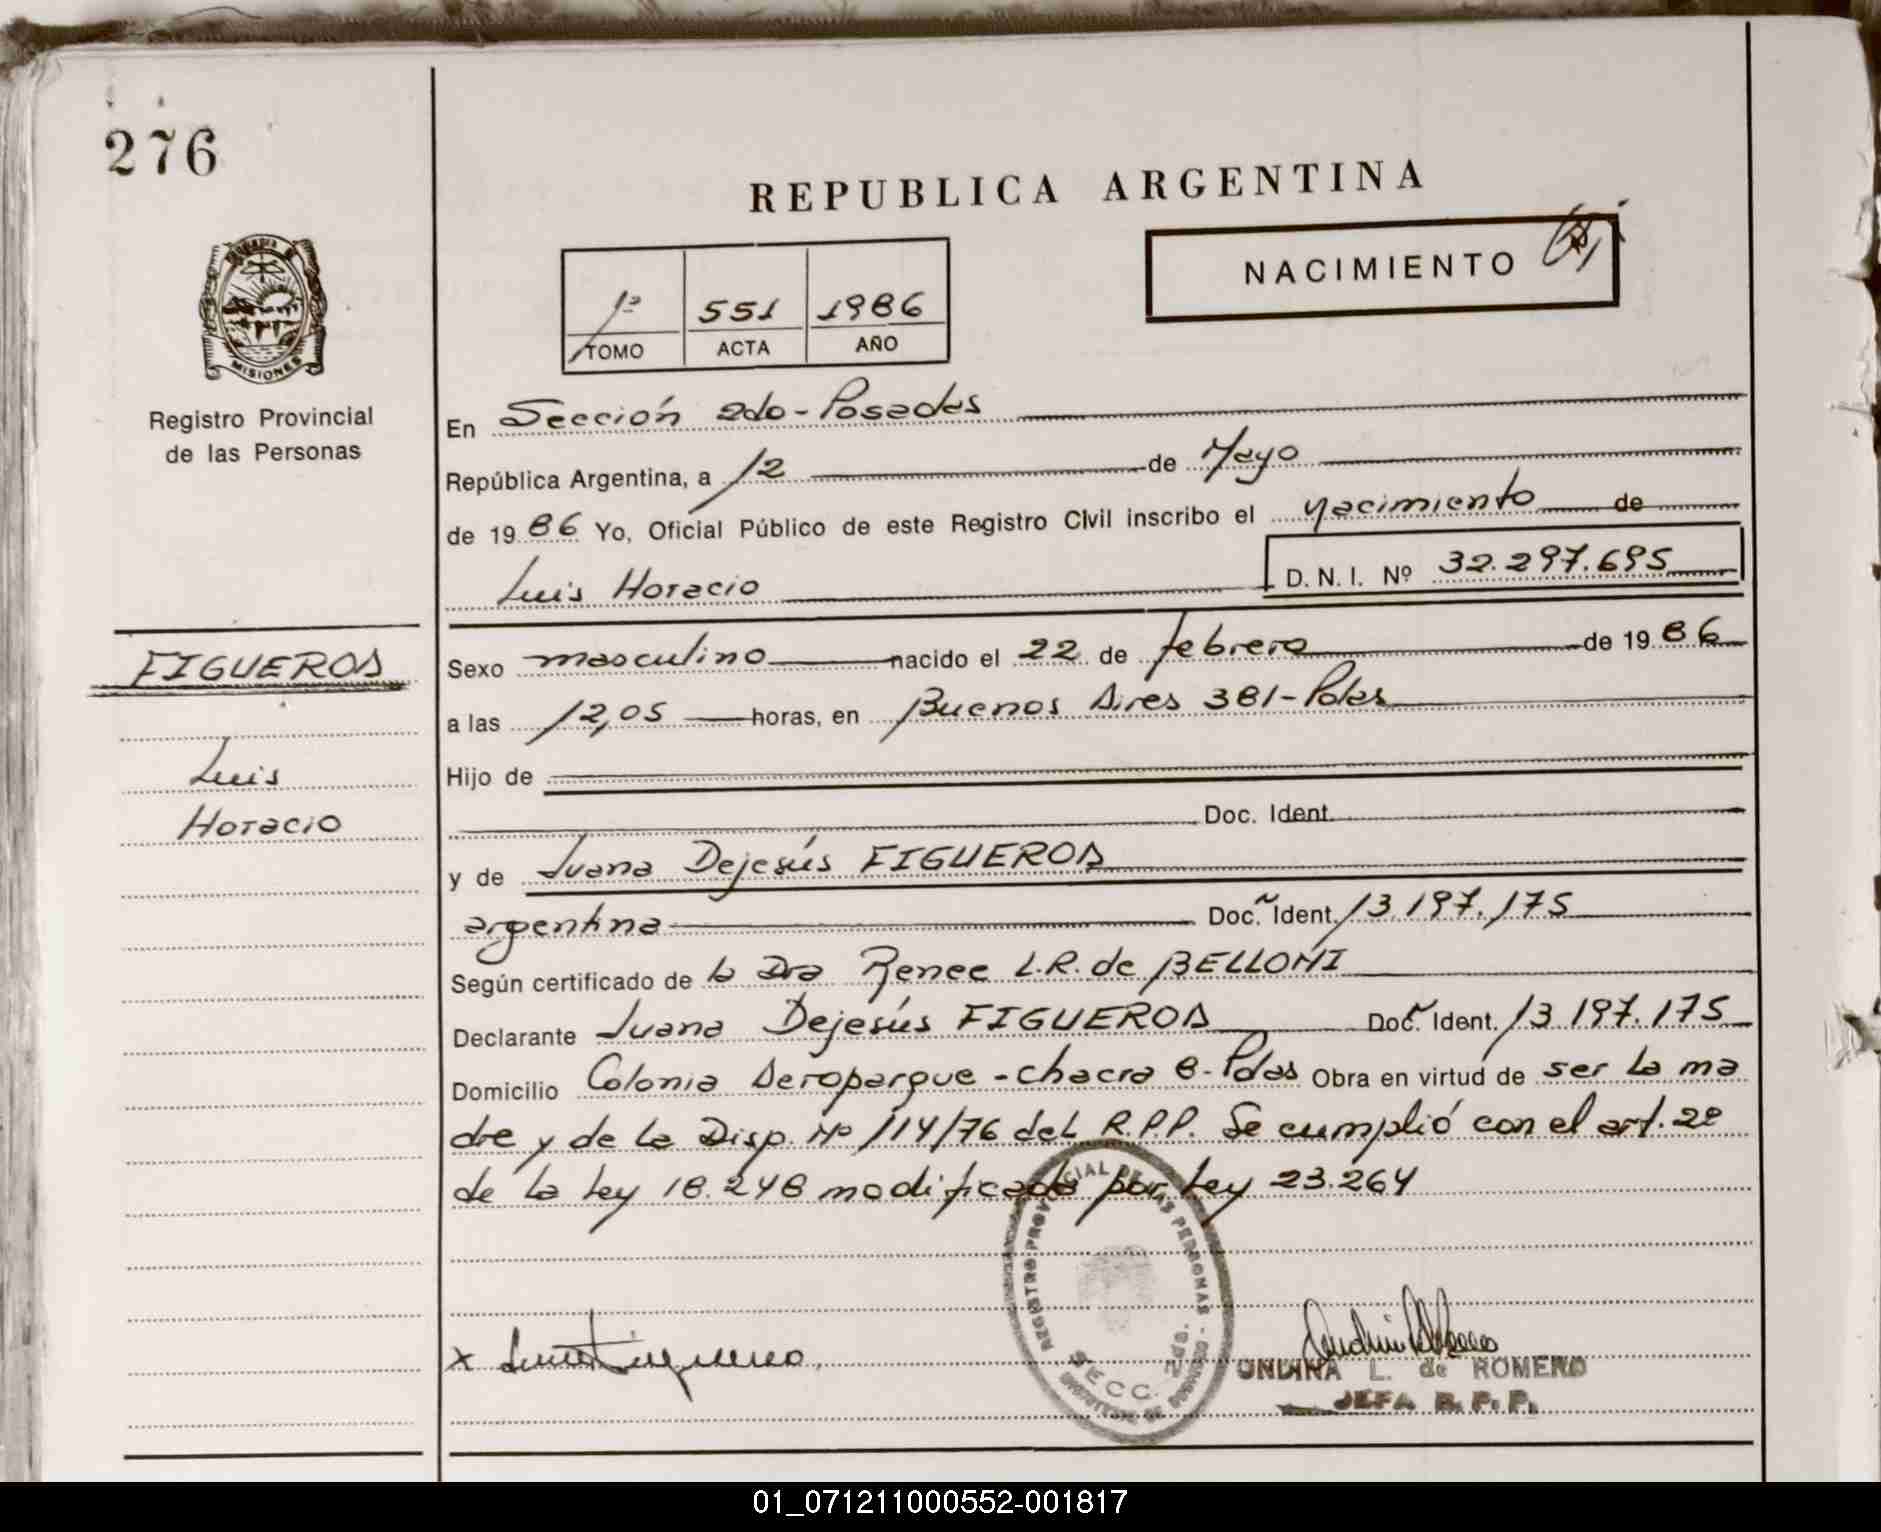 276
REPUBLICA ARGENTINA
NACIMIENTO
1º 551 1986
TOMO ACTA AÑO
MISIONES
Registro Provincial
de las Personas
En Sección 2da - Posadas
República Argentina, a 12 de Mayo
de 1986 Yo, Oficial Público de este Registro Civil inscribo el nacimiento de
Luis Horacio D. N. I. Nº 32.297.695
FIGUEROA
Luis
Horacio
Sexo masculino nacido el 22 de febrero de 1986
a las 12,05 horas, en Buenos Aires 381 - Pdas
Hijo de
Doc. Ident.
y de Juana Dejesús FIGUEROA
argentina Doc. Ident. 13.197.175
Según certificado de la Dra Renee L.R. de BELLONI
Declarante Juana Dejesús FIGUEROA Doc. Ident. 13.197.175
Domicilio Colonia Aeroparque - chacra 8 - Pdas Obra en virtud de ser la ma
dre y de la Disp. Nº 114/76 del R.P.P. Se cumplió con el art. 2º
de la Ley 18.248 modificado por Ley 23.264
REGISTRO PROVINCIAL DE LAS PERSONAS
SECC. 2
x
ONDINA L. de ROMERO
JEFA R.P.P.
01_071211000552-001817